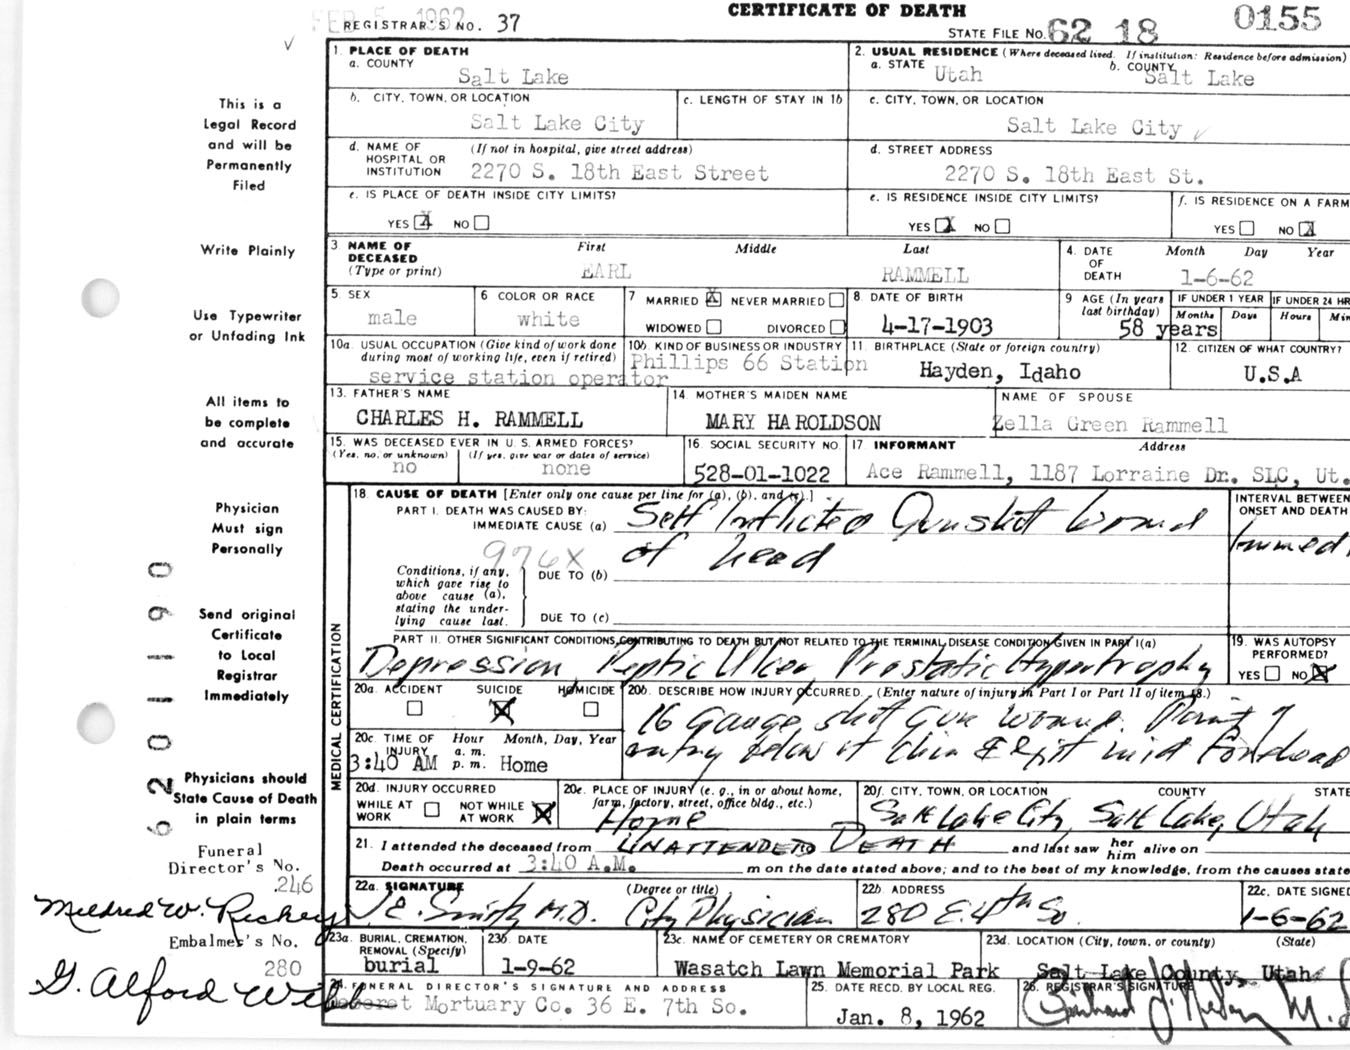 FEB 5 1962
REGISTRAR'S NO. 37
CERTIFICATE OF DEATH
STATE FILE NO. 62 18 0155
This is a
Legal Record
and will be
Permanently
Filed
Write Plainly
Use Typewriter
or Unfading Ink
All items to
be complete
and accurate
Physician
Must sign
Personally
Send original
Certificate
to Local
Registrar
Immediately
Physicians should
State Cause of Death
in plain terms
Funeral
Director's No.
246
Mildred W. Rickey
Embalmer's No.
280
G. Alford
62 01 1 90
1. PLACE OF DEATH
a. COUNTY
Salt Lake
2. USUAL RESIDENCE (Where deceased lived. If institution: Residence before admission)
a. STATE Utah b. COUNTY Salt Lake
b. CITY, TOWN, OR LOCATION
Salt Lake City
c. LENGTH OF STAY IN 1b
c. CITY, TOWN, OR LOCATION
Salt Lake City
d. NAME OF HOSPITAL OR INSTITUTION (If not in hospital, give street address)
2270 S. 18th East Street
d. STREET ADDRESS
2270 S. 18th East St.
e. IS PLACE OF DEATH INSIDE CITY LIMITS?
YES X NO
e. IS RESIDENCE INSIDE CITY LIMITS?
YES X NO
f. IS RESIDENCE ON A FARM
YES NO X
3 NAME OF DECEASED (Type or print)
First Middle Last
EARL RAMMELL
4. DATE OF DEATH Month Day Year
1-6-62
5. SEX
male
6 COLOR OR RACE
white
7 MARRIED X NEVER MARRIED
WIDOWED DIVORCED
8. DATE OF BIRTH
4-17-1903
9 AGE (In years last birthday)
58 years
IF UNDER 1 YEAR IF UNDER 24 HR
Months Days Hours Min
10a. USUAL OCCUPATION (Give kind of work done during most of working life, even if retired)
service station operator
10b. KIND OF BUSINESS OR INDUSTRY
Phillips 66 Station
11. BIRTHPLACE (State or foreign country)
Hayden, Idaho
12. CITIZEN OF WHAT COUNTRY?
U.S.A
13. FATHER'S NAME
CHARLES H. RAMMELL
14 MOTHER'S MAIDEN NAME
MARY HAROLDSON
NAME OF SPOUSE
Zella Green Rammell
15. WAS DECEASED EVER IN U. S. ARMED FORCES?
(Yes, no, or unknown) (If yes, give war or dates of service)
no none
16 SOCIAL SECURITY NO.
528-01-1022
17 INFORMANT Address
Ace Rammell, 1187 Lorraine Dr. SLC, Ut.
MEDICAL CERTIFICATION
18. CAUSE OF DEATH [Enter only one cause per line for (a), (b), and (c).]
INTERVAL BETWEEN ONSET AND DEATH
PART I. DEATH WAS CAUSED BY:
IMMEDIATE CAUSE (a) Self Inflicted Gunshot Wound
Immedi
976X of head
Conditions, if any, which gave rise to above cause (a), stating the underlying cause last.
DUE TO (b)
DUE TO (c)
PART II. OTHER SIGNIFICANT CONDITIONS CONTRIBUTING TO DEATH BUT NOT RELATED TO THE TERMINAL DISEASE CONDITION GIVEN IN PART I(a)
Depression Peptic Ulcer, Prostatic Hypertrophy
19. WAS AUTOPSY PERFORMED?
YES NO X
20a. ACCIDENT SUICIDE HOMICIDE
X
20b. DESCRIBE HOW INJURY OCCURRED. (Enter nature of injury in Part I or Part II of item 18.)
16 Gauge shot Gun wound. Point of
entry below rt chin & Exit mid Forehead
20c. TIME OF INJURY Hour a. m. p. m. Month, Day, Year
3:40 AM Home
20d. INJURY OCCURRED
WHILE AT WORK NOT WHILE AT WORK X
20e. PLACE OF INJURY (e. g., in or about home, farm, factory, street, office bldg., etc.)
Home
20f. CITY, TOWN, OR LOCATION COUNTY STATE
Salt Lake City, Salt Lake, Utah
21. I attended the deceased from UNATTENDED DEATH and last saw her him alive on
Death occurred at 3:40 A.M. m on the date stated above; and to the best of my knowledge, from the causes state
22a. SIGNATURE (Degree or title)
J E. Smith M.D. City Physician
22b. ADDRESS
280 E. 4th So.
22c. DATE SIGNED
1-6-62
23a. BURIAL, CREMATION, REMOVAL (Specify)
burial
23b. DATE
1-9-62
23c. NAME OF CEMETERY OR CREMATORY
Wasatch Lawn Memorial Park
23d. LOCATION (City, town, or county) (State)
Salt Lake County, Utah
24. FUNERAL DIRECTOR'S SIGNATURE AND ADDRESS
Deseret Mortuary Co. 36 E. 7th So.
25. DATE RECD. BY LOCAL REG.
Jan. 8, 1962
26. REGISTRAR'S SIGNATURE